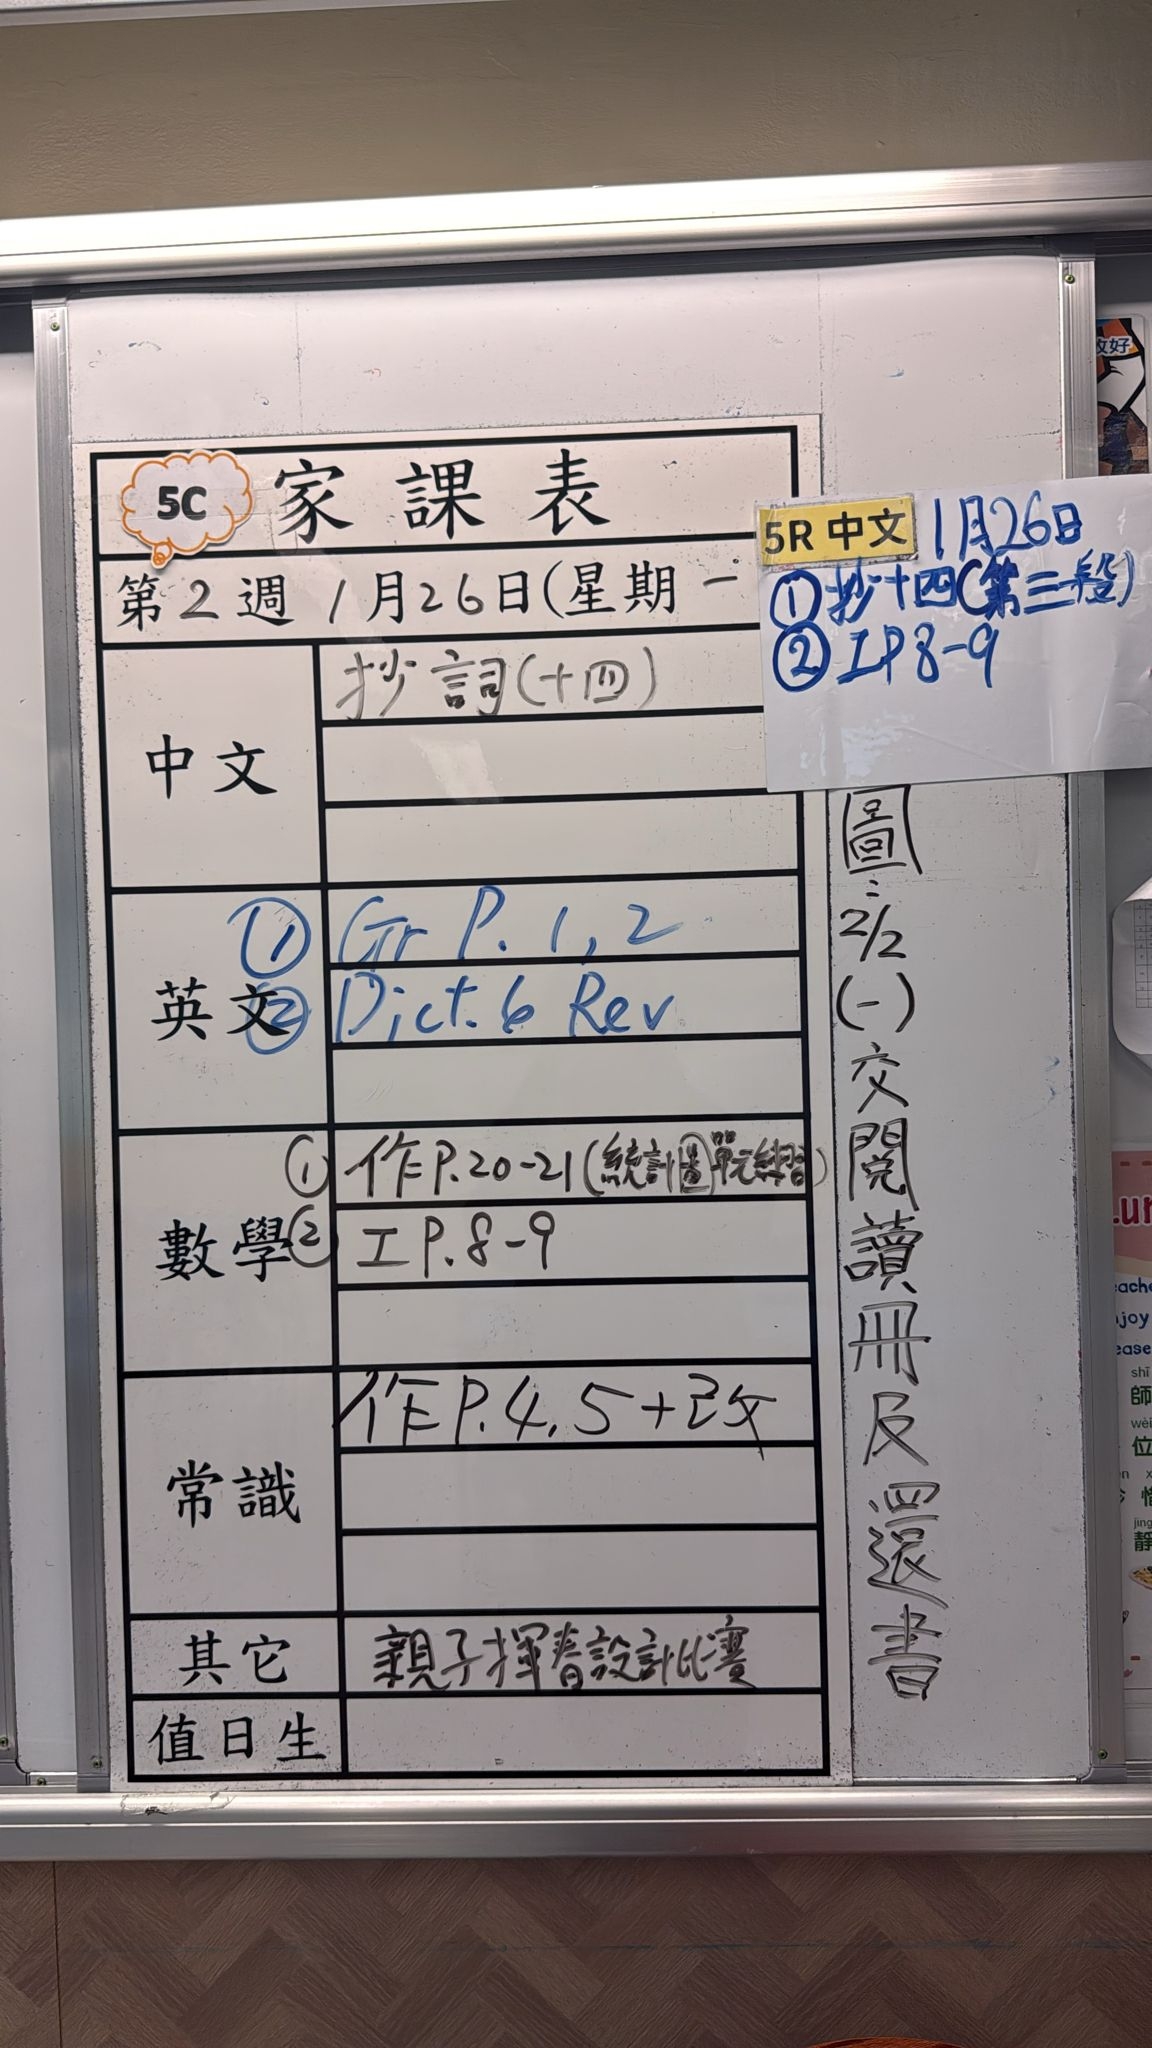 5C 家課表
第2週 1月26日(星期一
中文
抄詞(十四)
英文
① Gr P. 1, 2
② Dict. 6 Rev
數學
① 作P.20-21(統計圖單元練習)
② 工P.8-9
常識
作P.4, 5+改
其它
親子揮春設計比賽
值日生
5R 中文 1月26日
①抄十四(第三段)
②工P8-9
圖:2/2(一)交閱讀冊及還書
收好
師
位
靜